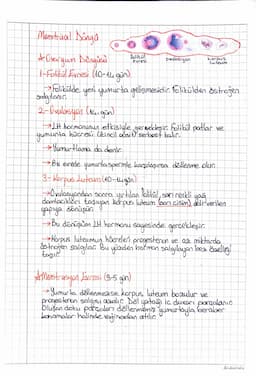 Menstrual Döngü
Folikül Evresi
Ovulasyon
Korpus Luteum
* Ovaryum Döngüsü
1- Folikül Evresi (10-14 gün)
→ Folikülde, yeni yumurta gelişmesidir. Folikülden östrojen
salgılanır.
2- Ovulasyon (14. gün)
→ LH hormonunun etkisiyle gerçekleşir. Folikül patlar ve
yumurta hücresi (ikincil oosit) serbest kalır.
→ Yumurtlama da denir.
→ Bu evrede yumurta spermle karşılaşırsa döllenme olur.
3- Korpus Luteum (10-14 gün)
→ Ovulasyondan sonra yırtılan folikül, sarı renkli yağ
damlacıkları taşıyan korpus luteum (sarı cisim) adı verilen
yapıya dönüşür.
→ Bu dönüşüm LH hormonu sayesinde gerçekleşir.
→ Korpus luteumun hücreleri progesteron ve az miktarda
östrojen salgılar. Bu yüzden hormon salgılayan bez özelliği
taşır.
* Menstruasyon Evresi (3-5 gün)
→ Yumurta döllenmezse korpus luteum bozulur ve
progesteron salgısı azalır. Döl yatağı iç duvarı parçalanır.
Oluşan doku parçaları döllenmemiş yumurtayla beraber
kanamalar halinde vajinadan atılır.